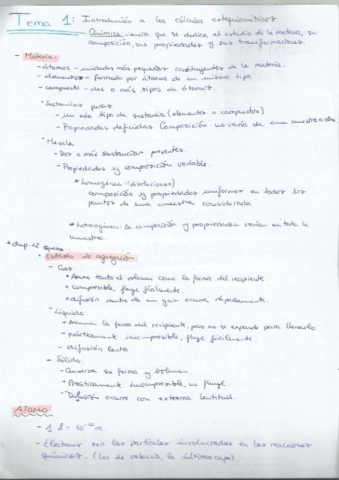 Tema 1: Introducción a los cálculos estequiométricos
Química: ciencia que se dedica al estudio de la materia, su
composición, sus propiedades y sus transformaciones.
- Materia:
- átomos - unidades más pequeñas constituyentes de la materia.
- elementos - formado por átomos de un mismo tipo.
- compuesto - dos o más tipos de átomos.
* Sustancias puras
- un solo tipo de sustancia (elementos o compuestos)
- Propiedades definidas. Composición no varía de una muestra a otra.
* Mezcla
- Dos o más sustancias presentes.
- Propiedades y composición variable.
* homogénea: (disoluciones)
composición y propiedades uniformes en todos los
puntos de una muestra considerada.
* heterogénea: la composición y propiedades varían en toda la
muestra.
* diap. 12
* Estados de agregación.
- Gas
* Asume tanto el volumen como la forma del recipiente
* compresible, fluye fácilmente.
* difusión dentro de un gas ocurre rápidamente.
- Líquido
- Asume la forma del recipiente, pero no se expande para llenarlo
- prácticamente incompresible, fluye fácilmente.
- difusión lenta.
- Sólido
- Conserva su forma y volumen
- Prácticamente incompresible, no fluye.
- Difusión ocurre con extrema lentitud.
ÁTOMO
- 1 Å = 10⁻¹⁰ m.
- Electrones son las partículas involucradas en las reacciones
químicas. (Los de valencia, la última capa).